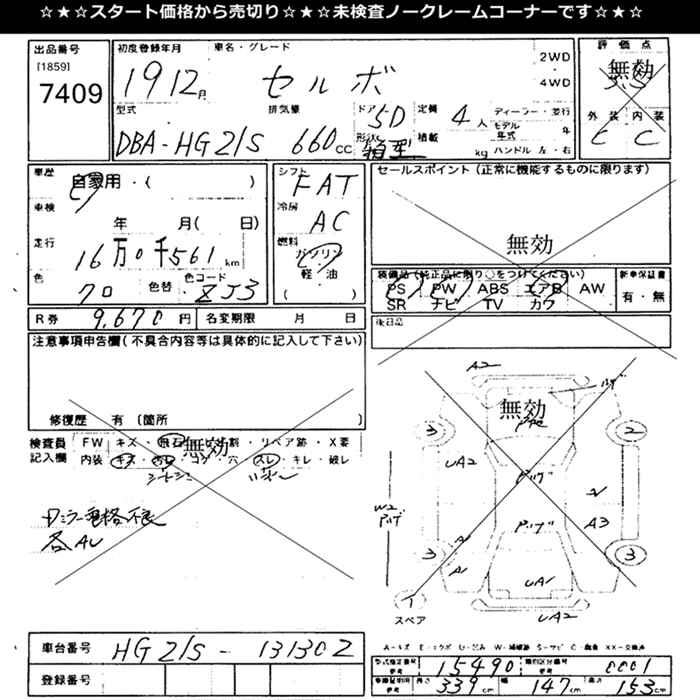 ☆★☆★スタート価格から売切り☆★☆★未検査ノークレームコーナーです☆★☆★
出品番号 初度登録年月 車名・グレード 評価点
[1859]
7409
19 12月 セルボ 2WD
4WD
無効
外装 内装
C C
型式 排気量 ドア 定員 ディーラー・並行
DBA-HG21S 660cc 5D 4人 モデル年式 年
形状 積載 kg ハンドル 左・右
車歴 自家用・( )
シフト FAT
セールスポイント (正常に機能するものに限ります)
車検 年 月( 日)
冷房 AC
無効
走行 16万0千561km
燃料 ガソリン
軽・油
( )
色 クロ 色替 色コード ZJ3
装備品(純正品に限り○をつけてください) 新車保証書
PS PW ABS エアB AW 有・無
SR ナビ TV カワ
R券 9,670円 名変期限 月 日
後日品
注意事項申告欄(不具合内容等は具体的に記入して下さい)
修復歴 有(箇所 )
検査員 FW キズ・飛石 リペア跡・X要
記入欄 内装 キズ コゲ・穴 スレ・キレ・破レ
無効
各AU
A2
無効
3 2
UA2
W2
A3
A
3 3
A
UA1
1
スペア
UA2
車台番号 HG21S-131302
登録番号
型式指定番号 参考 15490 類別区分番号 参考 0001
長さ 339cm 幅 147cm 高さ 153cm